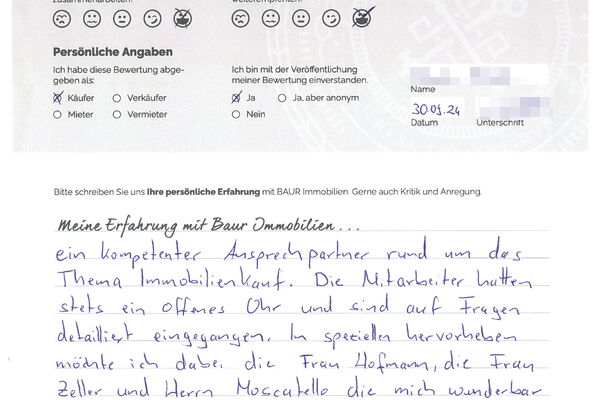 Persönliche Angaben
Ich habe diese Bewertung abge-
geben als:
Käufer Verkäufer
Mieter Vermieter
Ich bin mit der Veröffentlichung
meiner Bewertung einverstanden.
Ja Ja, aber anonym
Nein
Name
30.09.24
Datum Unterschrift
Bitte schreiben Sie uns Ihre persönliche Erfahrung mit BAUR Immobilien. Gerne auch Kritik und Anregung.
Meine Erfahrung mit Baur Immobilien...
ein kompetenter Ansprechpartner rund um das
Thema Immobilienkauf. Die Mitarbeiter hatten
stets ein offenes Ohr und sind auf Fragen
detailliert eingegangen. In speziellen hervorheben
möchte ich dabei die Frau Hofmann, die Frau
Zeller und Herrn Moscatello die mich wunderbar